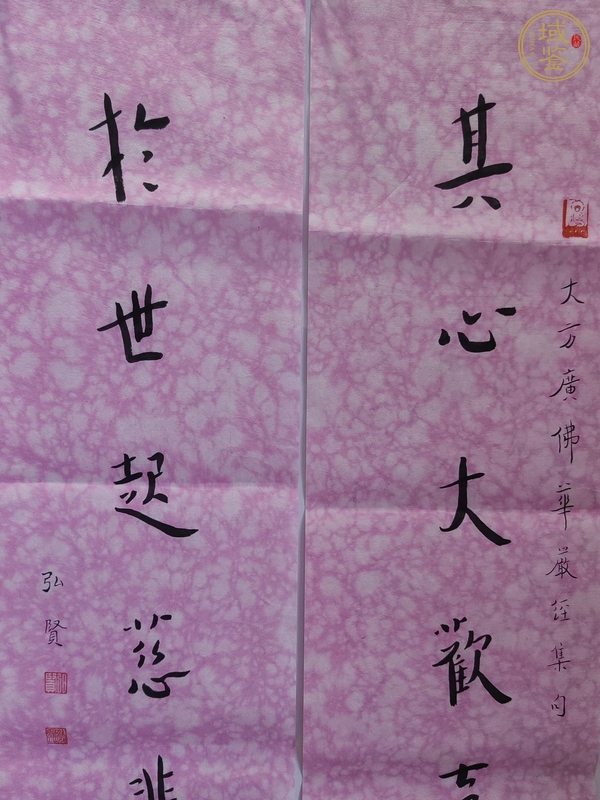 大方廣佛華嚴經集句
其心大歡喜
於世起慈悲
弘賢
域鉴